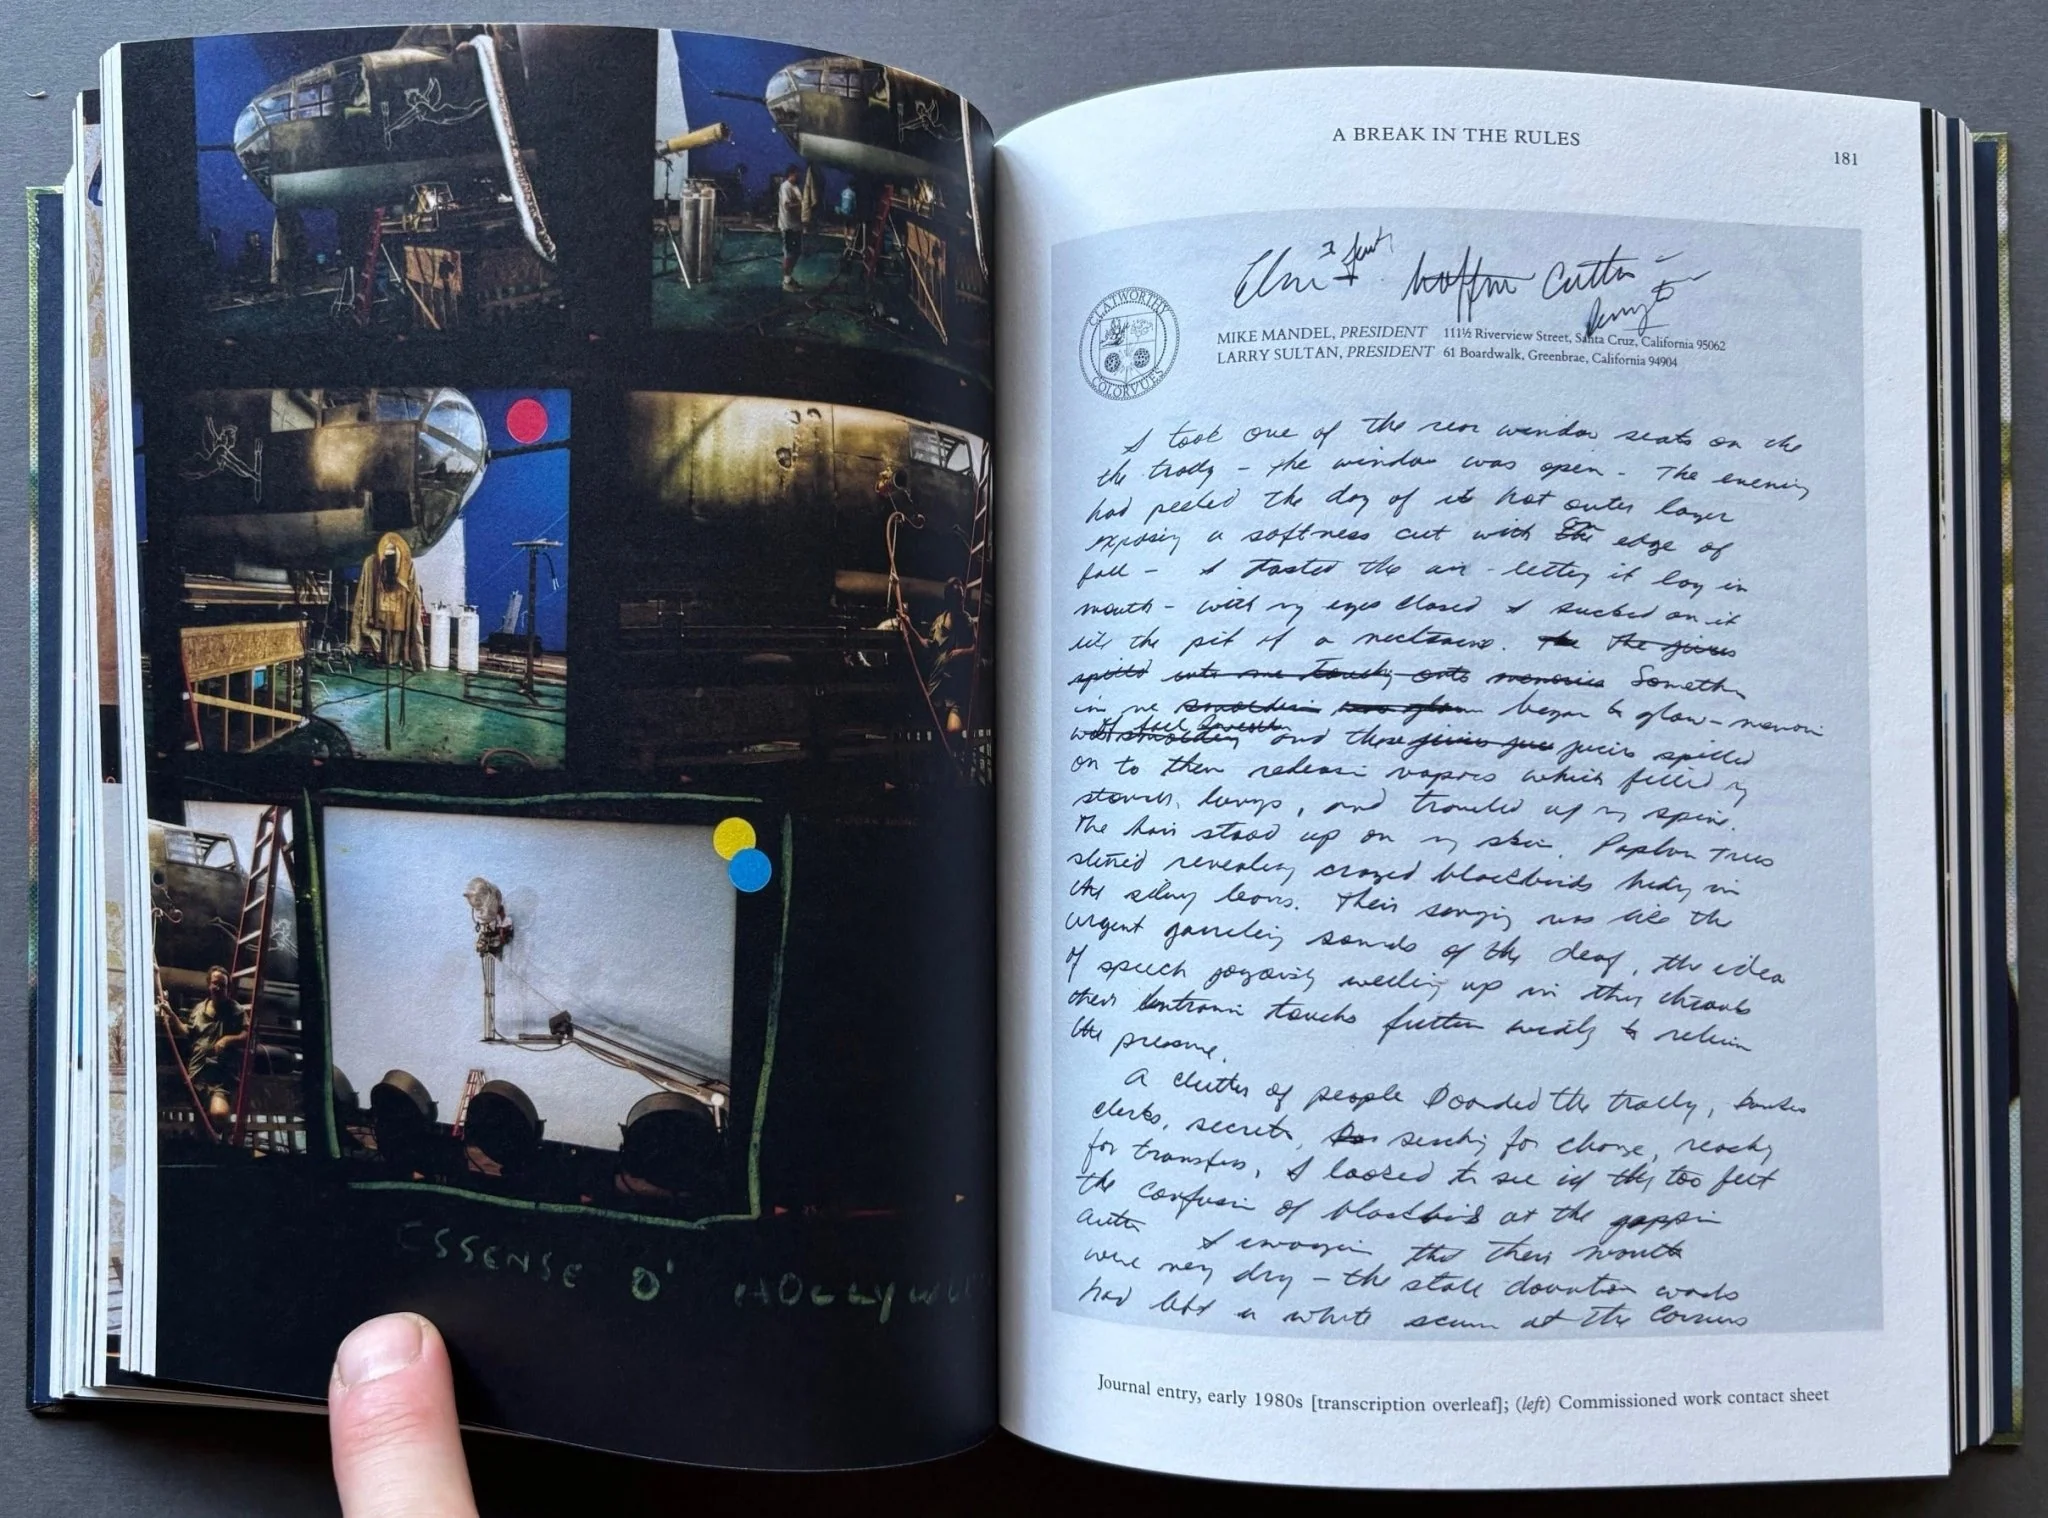 ESSENSE O' HOLLYW
A BREAK IN THE RULES
181
CLATWORTHY
COLORVUES
MIKE MANDEL, PRESIDENT 111½ Riverview Street, Santa Cruz, California 95062
LARRY SULTAN, PRESIDENT 61 Boardwalk, Greenbrae, California 94904
I took one of the rear window seats on the
the trolly – the window was open – The evening
had peeled the day of it hot outer layer
exposing a softness cut with the edge of
fall – I tasted the air – letting it lay in
mouth – with my eyes closed I sucked on it
like the pit of a nectarine. The juices
spilled onto memories Something
in me began to glow – memories
and these juices spilled
on to them releasing vapors which filled my
stomach, lungs, and traveled up my spine.
The hair stood up on my skin. Poplar Trees
revealing crazed blackbirds hiding in
the silvery leaves. Their singing was like the
urgent sounds of the deaf, the idea
of speech joyously welling up in their throats
their to
the pressure.
A clutter of people boarded the trolly,
clerks, searching for change, reaching
for transfers, I looked to see if they too felt
the confusion of blackbirds at the
I imagine that their mouth
were very dry – the stale downtown words
had left a white scum at the corners
Journal entry, early 1980s [transcription overleaf]; (left) Commissioned work contact sheet